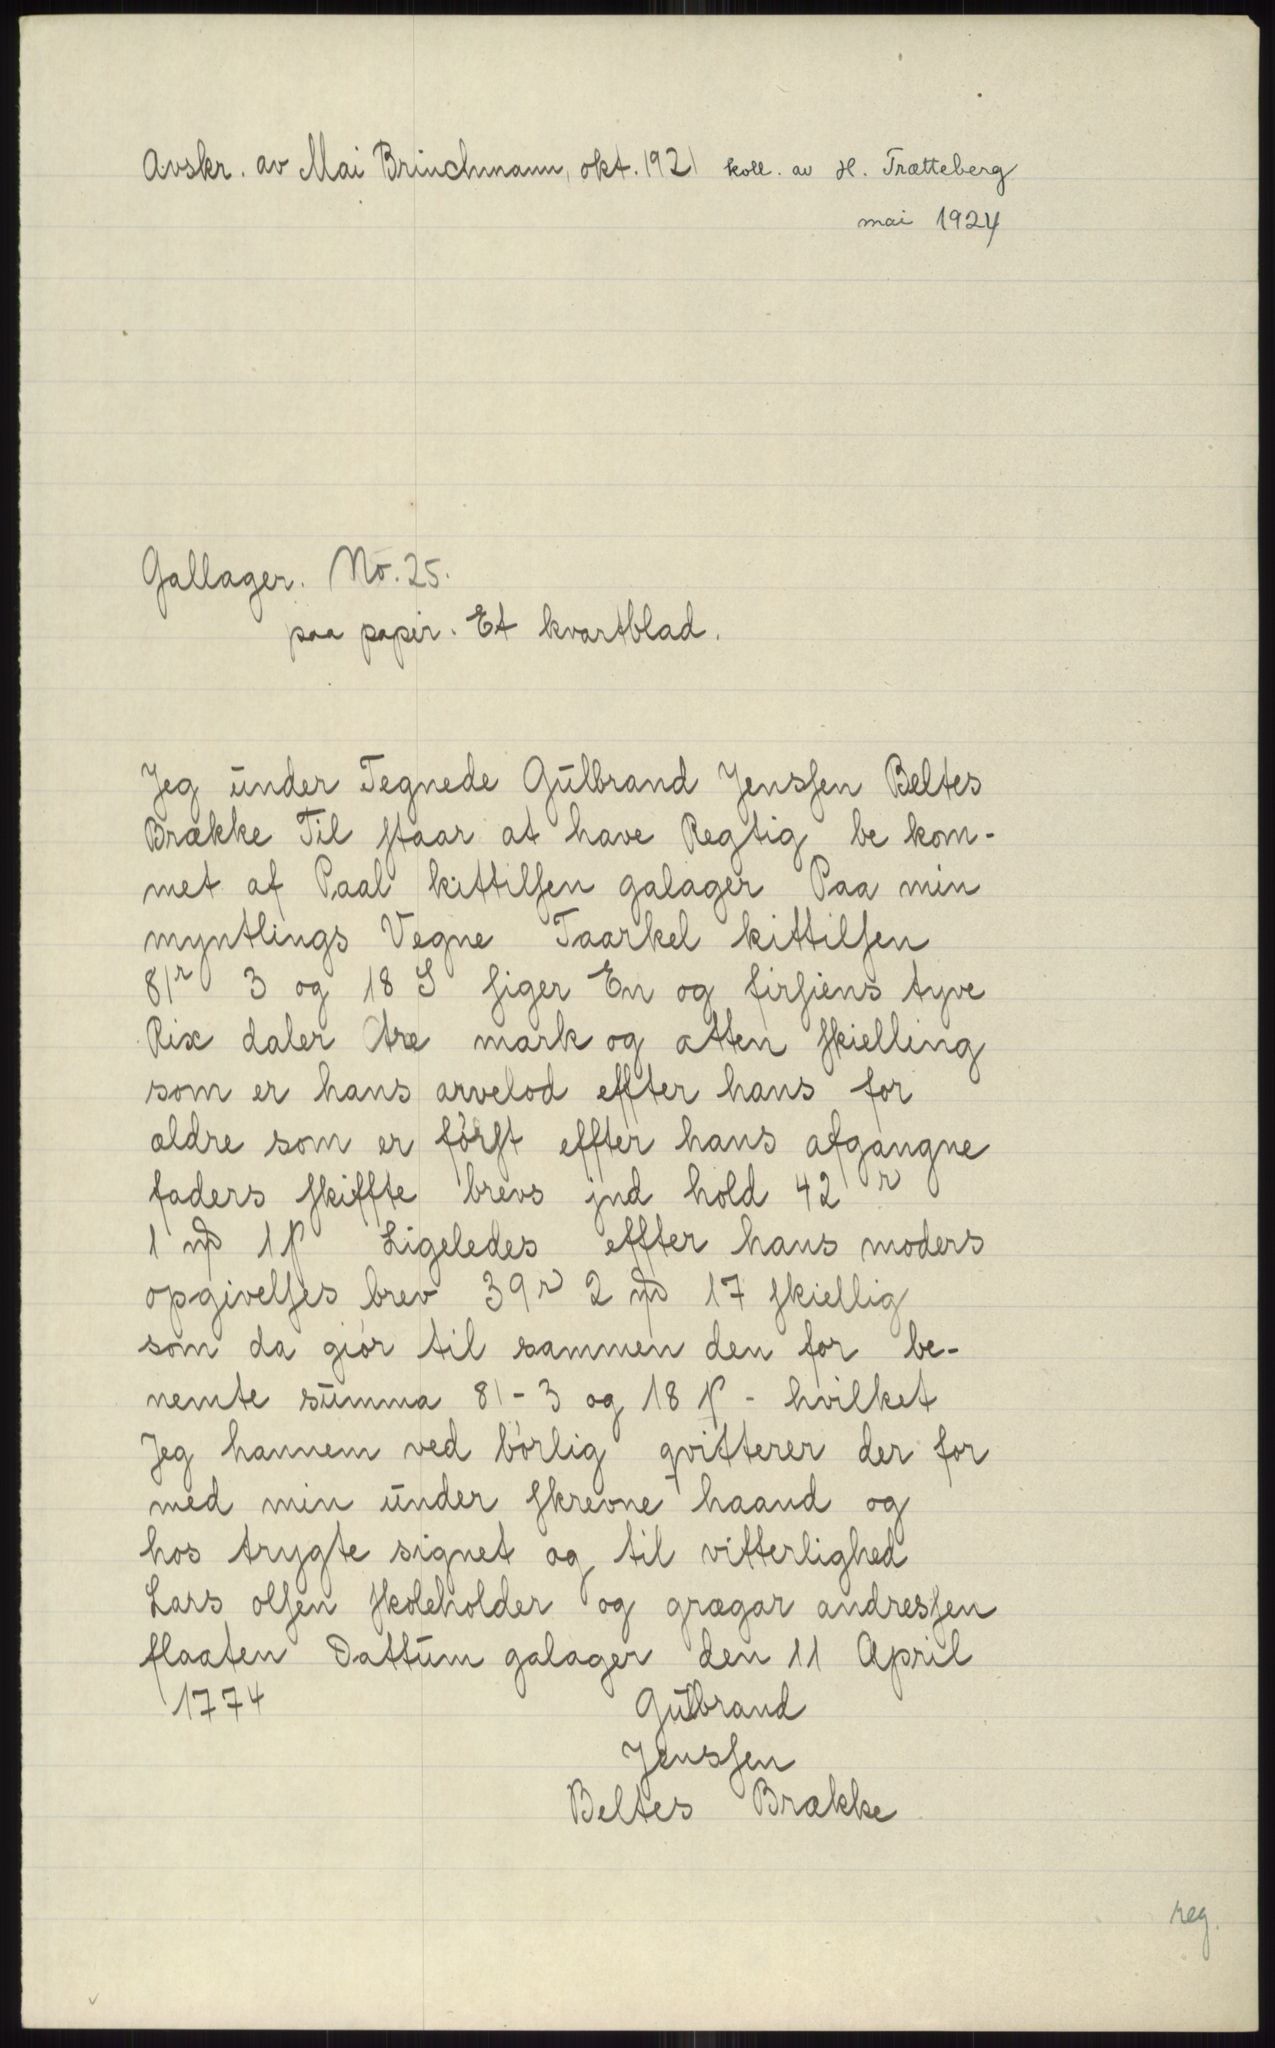 Avskr. av Mai Brinchmann, okt. 1921 koll. av H. Trætteberg
mai 1924
Gallager. No. 25.
paa papir. Et kvartblad.
Jeg ūnder Tegnede Gūlbrand Jensſen Beltes
Brække Til ſtaar at have Regtig be kom-
met af Paal kittilſen galager Paa min
myntlings Vegne Taarkel kittilſen
81r 3 og 18 S ſiger En og firſiens tyve
Rix daler tre mark og atten ſkielling
som er hans arvelod effter hans for
ældre som er førſt effter hans afgangne
faders ſkiffte brevs jnd hold 42 r
1 mꝭ 1 β Ligeledes effter hans moders
opgivelſes brev 39r 2 mꝭ 17 ſkiellig
som da giør til sammen den for be-
nemte sūmma 81-3 og 18 β - hvilket
Jeg hannem ved børlig qvitterer der for
med min ūnder ſkrevne haand og
hos trygte signet og til vitterlighed
Lars olſen ſkoleholder og grægar andresſen
flaaten Dattūm galager den 11 April
1774 Gūlbrand
Jensſen
Beltes Brække
reg.